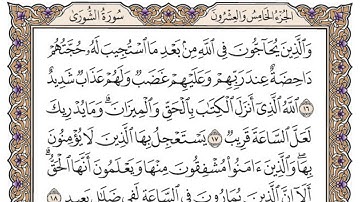 سُورَةُ الشُّورَى
الجُزْءُ الخَامِسُ وَالعِشْرُونَ
وَٱلَّذِينَ يُحَآجُّونَ فِى ٱللَّهِ مِنۢ بَعْدِ مَا ٱسْتُجِيبَ لَهُۥ حُجَّتُهُمْ
دَاحِضَةٌ عِندَ رَبِّهِمْ وَعَلَيْهِمْ غَضَبٌ وَلَهُمْ عَذَابٌ شَدِيدٌ
١٦ ٱللَّهُ ٱلَّذِىٓ أَنزَلَ ٱلْكِتَٰبَ بِٱلْحَقِّ وَٱلْمِيزَانَ ۗ وَمَا يُدْرِيكَ
لَعَلَّ ٱلسَّاعَةَ قَرِيبٌ ١٧ يَسْتَعْجِلُ بِهَا ٱلَّذِينَ لَا يُؤْمِنُونَ
بِهَا ۖ وَٱلَّذِينَ ءَامَنُوا۟ مُشْفِقُونَ مِنْهَا وَيَعْلَمُونَ أَنَّهَا ٱلْحَقُّ ۗ
أَلَآ إِنَّ ٱلَّذِينَ يُمَارُونَ فِى ٱلسَّاعَةِ لَفِى ضَلَٰلٍۭ بَعِيدٍ ١٨